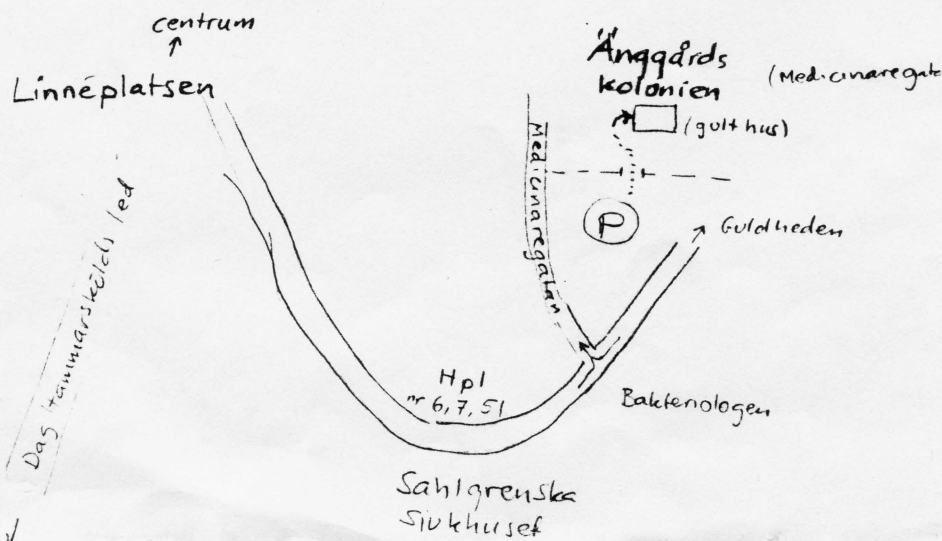 centrum
Linnéplatsen
Änggårds
kolonien
(Medicinaregat
(gult hus)
Medicinaregatan
P
Guldheden
Dag Hammarskölds led
Hpl
nr 6, 7, 51
Bakteriologen
Sahlgrenska
Sjukhuset